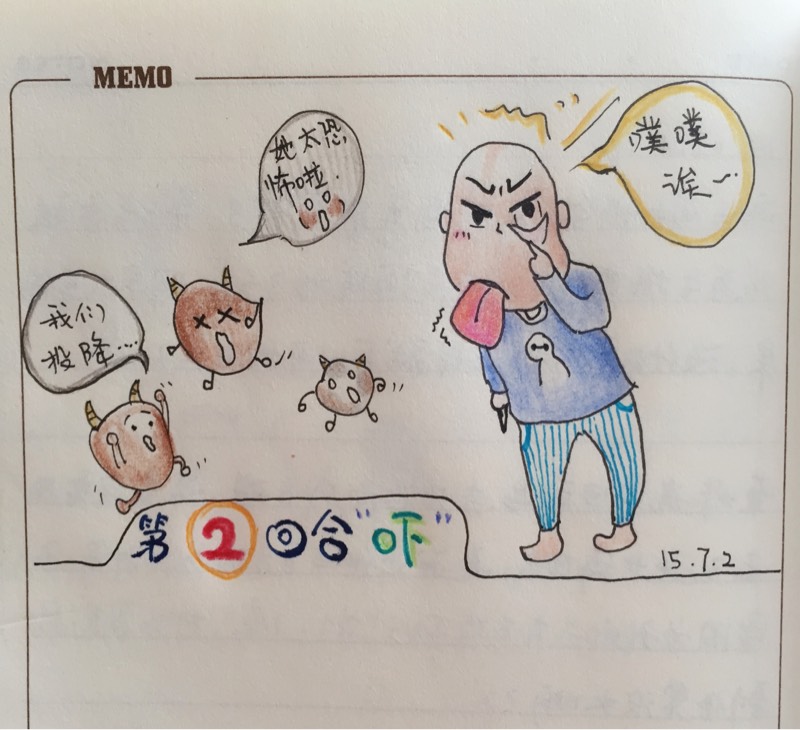 MEMO
她太恐
怖啦.
噗噗
诶~
我们
投降....
第2回合"吓"
15.7.2